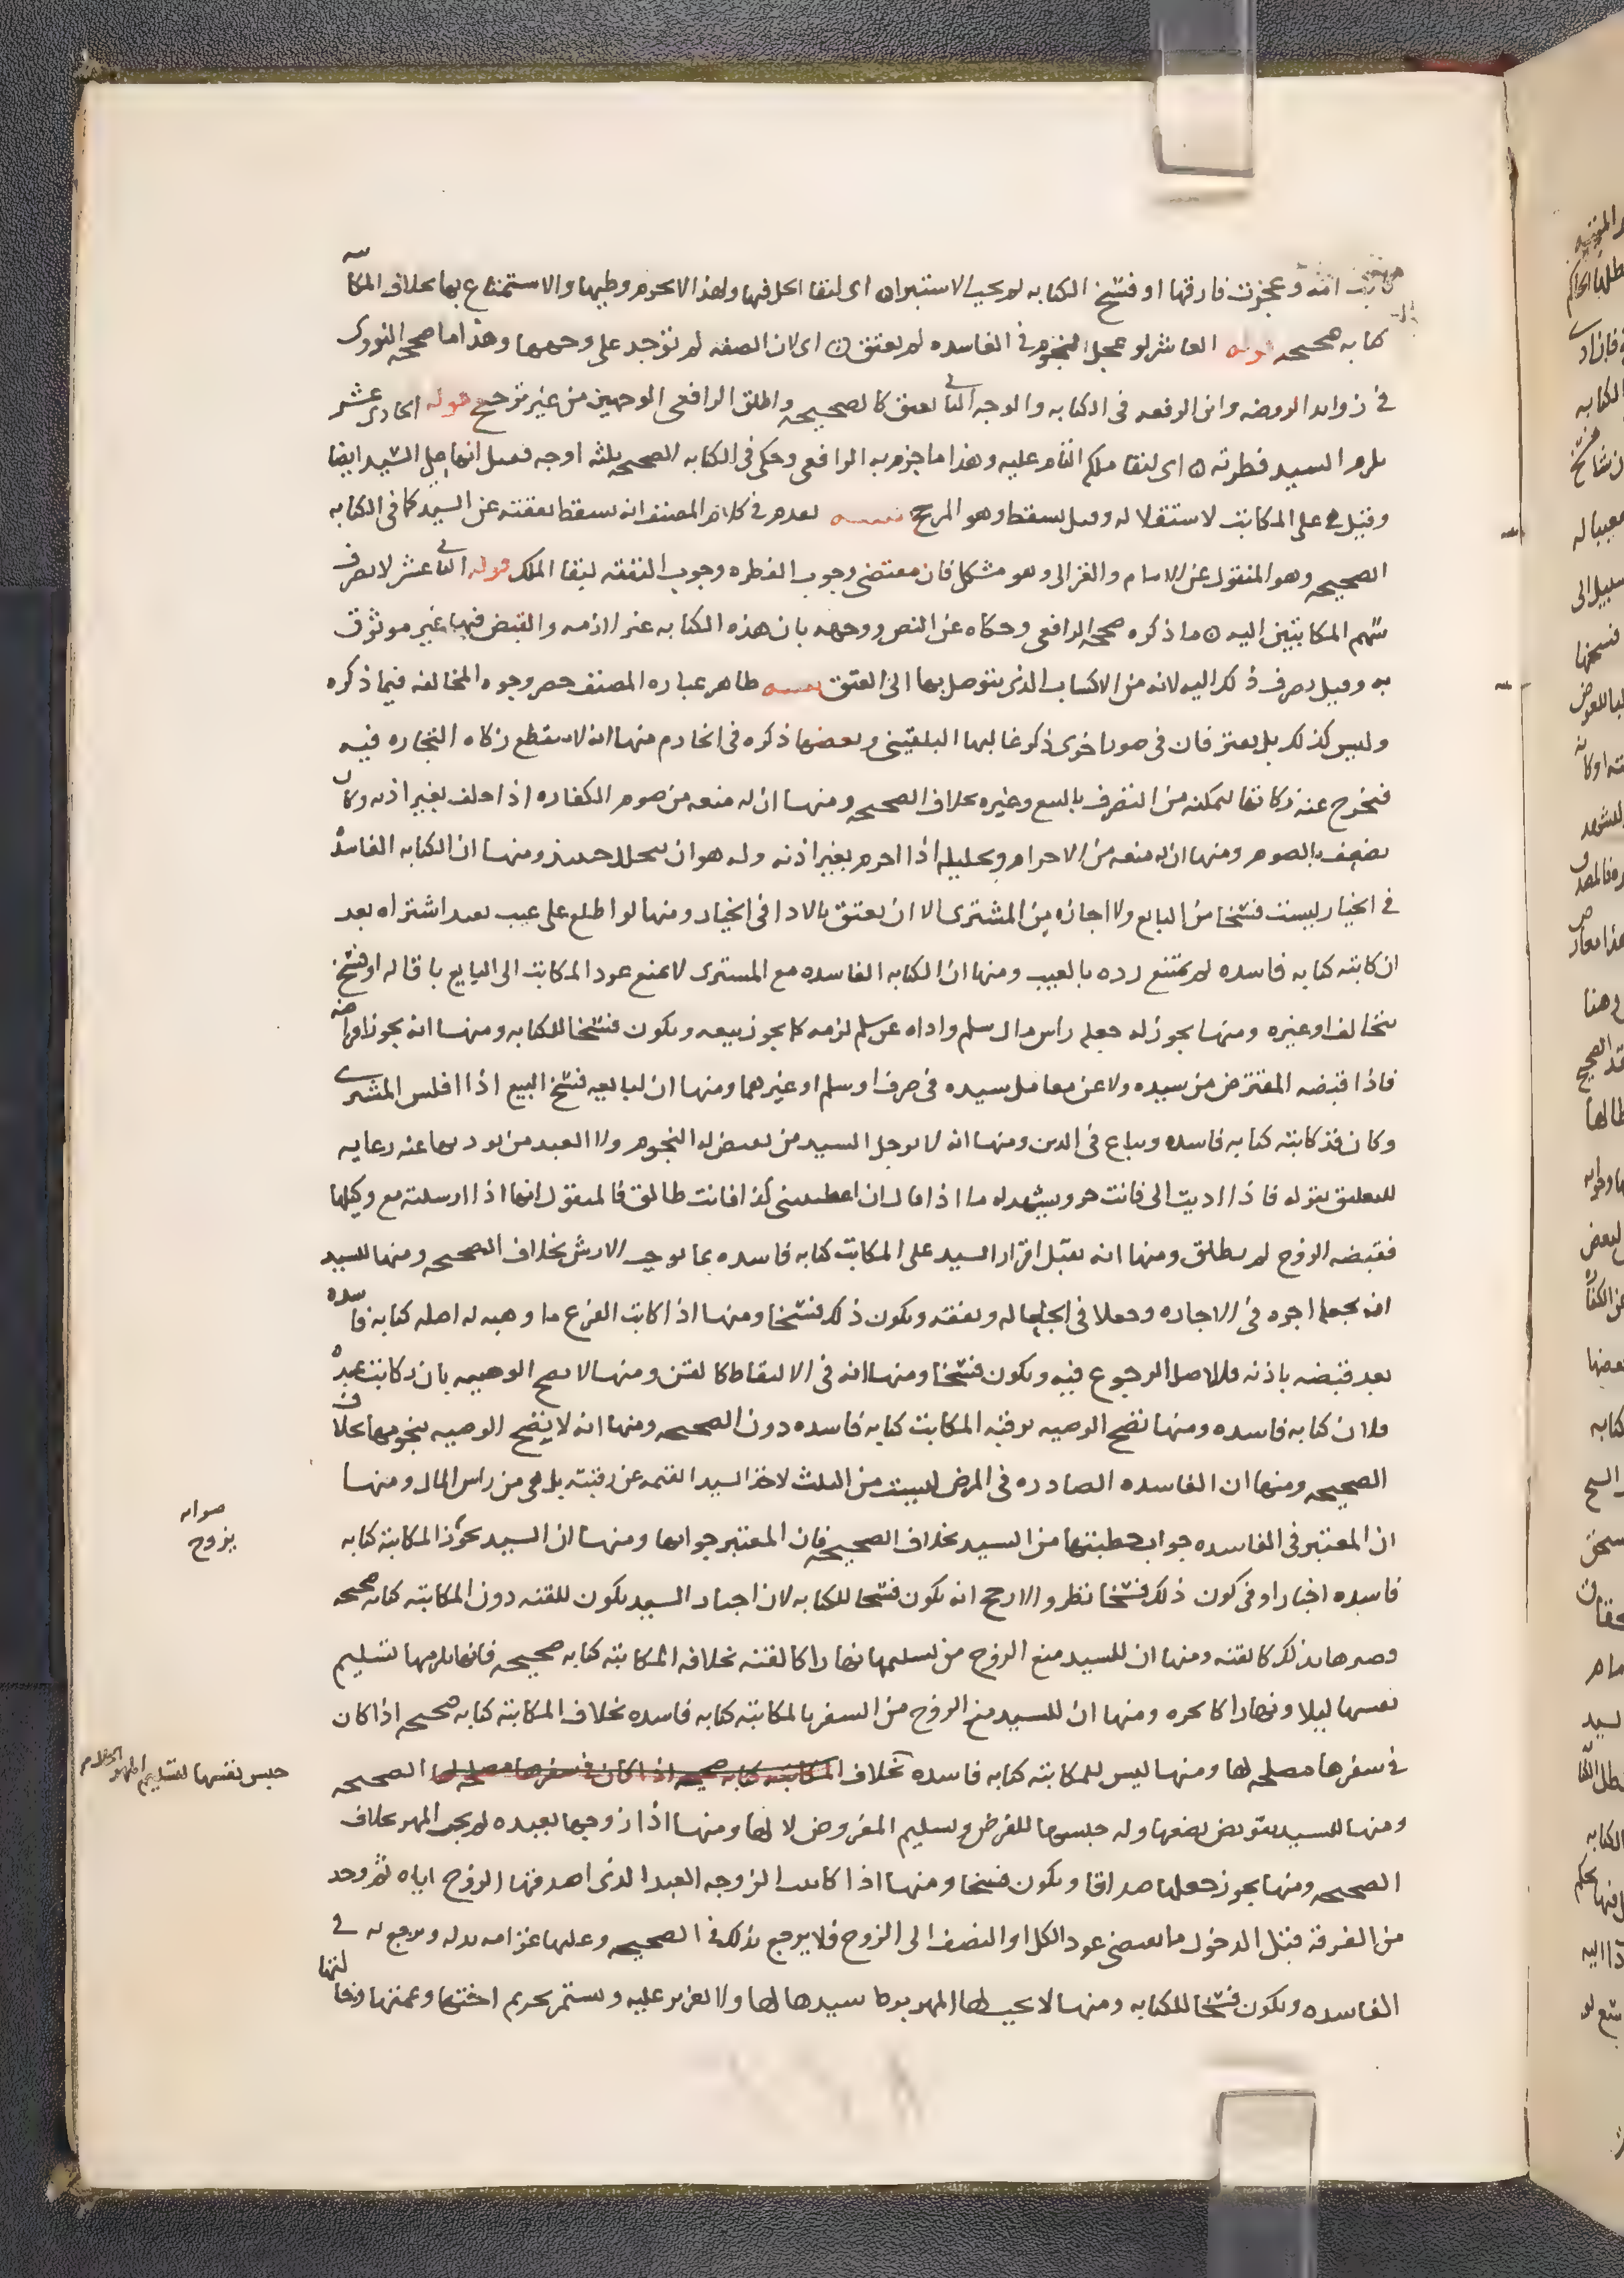 كاتب امته وعجزت فارقها او فسخ الكتابه لم يجب الاستبرا ه اى لبقا الحل فيها ولهذا لا يحرم وطيها والاستمتاع بها بخلاف المكاتبه
كتابه صحيحه قوله العاشر لو عجل النجوم فى الفاسده لم يعتق ه اى لان الصفه لم توجد على وجهها وهذا ما صححه النووى
فى زوايد الروضه وابن الرفعه فى الكتابه والوجه الثانى يعتق كالصحيحه واطلق الرافعى الوجهين من غير ترجيح قوله الحادى عشر
يلزم السيد فطرته ه اى لبقا ملكه التام عليه وهذا ما جزم به الرافعى وحكى فى الكتابه الصحيحه ثلثه اوجه فقيل انها على السيد ايضا
وقيل هى على المكاتب لاستقلاله وقيل يسقط وهو المرجح تنبيه تقدم فى كلام المصنف انه يسقط نفقته عن السيد كما فى الكتابه
الصحيحه وهو المنقول عن الامام والغزالى وهو مشكل فان مقتضى وجوب الفطره وجوب النفقه لبقا الملك قوله الثانى عشر لا يصرف
سهم المكاتبين اليه ه ما ذكره صححه الرافعى وحكاه عن النص ووجهه بان هذه الكتابه غير لازمه والقبض فيها غير موثوق
به وقيل يصرف ذلك اليه لانه من الاكساب الذى يتوصل بها الى العتق تنبيه ظاهر عباره المصنف حصر وجوه المخالفه فيما ذكره
وليس كذلك بل يفترقان فى صور اخرى ذكر غالبها البلقينى وبعضها ذكره فى الخادم منها انه لا يقطع زكاه التجاره فيه
فيخرج عنه زكاتها لتمكنه من التصرف بالبيع وغيره بخلاف الصحيحه ومنها ان له منعه من صوم الكفاره اذا حلف بغير اذنه وكان
يضعف بالصوم ومنها ان له منعه من الاحرام وتحليله اذا احرم بغير اذنه وله هو ان يتحلل حينيذ ومنها ان الكتابه الفاسده
فى الخيار ليست فسخا من البايع ولا اجازه من المشترى الا ان يعتق بالادا فى الخيار ومنها لو اطلع على عيب بعد اشتراه بعد
ان كاتبه كتابه فاسده لم يمتنع رده بالعيب ومنها ان الكتابه الفاسده مع المشترى لا تمنع عود المكاتب الى البايع باقاله او فسخ
بتحالف او غيره ومنها يجوز له جعله راس مال سلم واداه عن سلم لزمه كما يجوز بيعه ويكون فسخا للكتابه ومنها انه يجوز اقراضه
فاذا قبضه المقترض من سيده ولا عن معامل سيده فى صرف او سلم او غيرهما ومنها ان لبايعه فسخ البيع اذا افلس المشترى
وكان قد كاتبه كتابه فاسده ويباع فى الدين ومنها انه لا يوجل السيد من يقبض له النجوم ولا العبد من يوديها عنه رعايه
للتعليق بقوله فاذا اديت الى فانت حر ويشهد له ما اذا قال ان اعطيتنى كذا فانت طالق فالمنقول انها اذا ارسلته مع وكيلها
فقبضه الزوج لم تطلق ومنها انه يقبل اقرار السيد على المكاتب كتابه فاسده بما يوجب الارش بخلاف الصحيحه ومنها للسيد
انه يجعله اجره فى الاجاره وجعلا فى الجعاله ونفقه ويكون ذلك فسخا ومنها اذا كاتب الفرع ما وهبه له اصله كتابه فاسده
بعد قبضه باذنه فللاصل الرجوع فيه ويكون فسخا ومنها انه فى الالتقاط كالقن ومنها لا تصح الوصيه بان يكاتب عبده
فلان كتابه فاسده ومنها تصح الوصيه برقبه المكاتب كتابه فاسده دون الصحيحه ومنها انه لا تصح الوصيه بنجومها بخلاف
الصحيحه ومنها ان الفاسده الصادره فى المرض ليست من الثلث لاخذ السيد القيمه عن رقبته بل هى من راس المال ومنها
ان المعتبر فى الفاسده جواب خطبتها من السيد بخلاف الصحيحه فان المعتبر جوابها ومنها ان السيد يجوز المكاتبه كتابه
صوابه
يزوج
فاسده اجبارا وفى كون ذلك فسخا نظر والارجح انه يكون فسخا للكتابه لان اجبار السيد يكون للقنه دون المكاتبه كتابه صحيحه
وصيرها بذلك كالقنه ومنها ان للسيد منع الزوج من تسليمها نهارا كالقنه بخلاف المكاتبه كتابه صحيحه فانها يلزمها تسليم
نفسها ليلا ونهارا كالحره ومنها ان للسيد منع الزوج من السفر بالمكاتبه كتابه فاسده بخلاف المكاتبه كتابه صحيحه اذا كان
فى سفرها مصلحه لها ومنها ليس للمكاتبه كتابه فاسده بخلاف المكاتبه كتابه صحيحه اذا كان فى سفرها مصلحه لها الصحيحه
حبس نفسها لتسليم المهر
ومنها للسيد تفويض بضعها وله حبسها للفرض وتسليم المفروض لا لها ومنها اذا زوجها بعبده لم يجب المهر بخلاف
الصحيحه ومنها يجوز جعلها صداقا ويكون فسخا ومنها اذا كاتبت الزوجه العبد الذى اصدقها الزوج اياه ثم وجد
من الفرقه قبل الدخول ما يقتضى عود الكل او النصف الى الزوج فلا يرجع بذلك فى الصحيحه وعليها غرامه بدله ويرجع به فى
الفاسده ويكون فسخا للكتابه ومنها لا يجب لها المهر بوطا سيدها لها ولا التعزير عليه ويستمر تحريم اختها وعمتها وخالتها